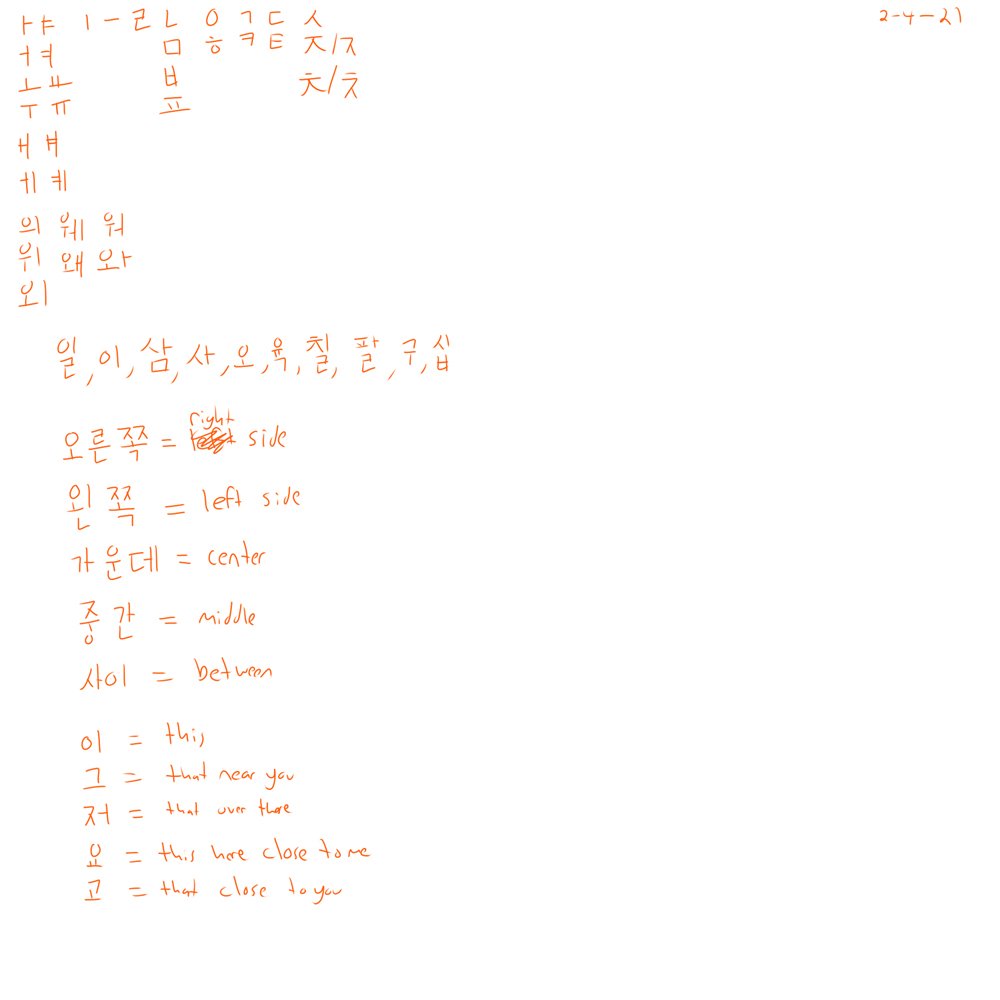 ㅏ ㅑ ㅣ ㅡ ㄹ ㄴ ㅇ ㄱ ㄷ ㅅ 2-4-21
ㅓ ㅕ ㅁ ㅎ ㅋ ㅌ ㅈ/ㅈ
ㅗ ㅛ ㅂ ㅊ/ㅊ
ㅜ ㅠ ㅍ
ㅐ ㅒ
ㅔ ㅖ
의 웨 워
위 왜 와
외
일, 이, 삼, 사, 오, 육, 칠, 팔, 구, 십
오른쪽 = right side
왼쪽 = left side
가운데 = center
중간 = middle
사이 = between
이 = this
그 = that near you
저 = that over there
요 = this here close to me
고 = that close to you